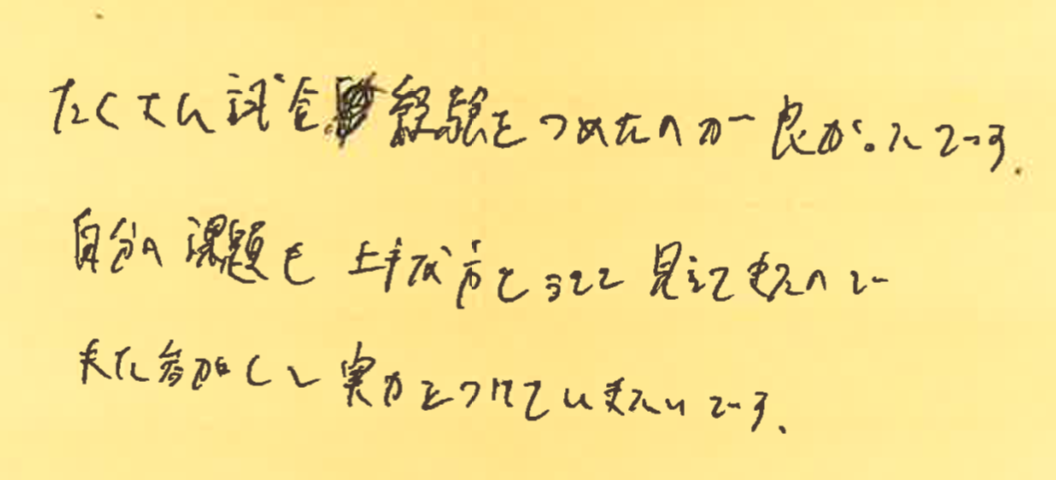 たくさん試合経験をつめたのが良かったです.
自分の課題も上手な方をみてて見えてきたので
また参加して実力をつけていきたいです.